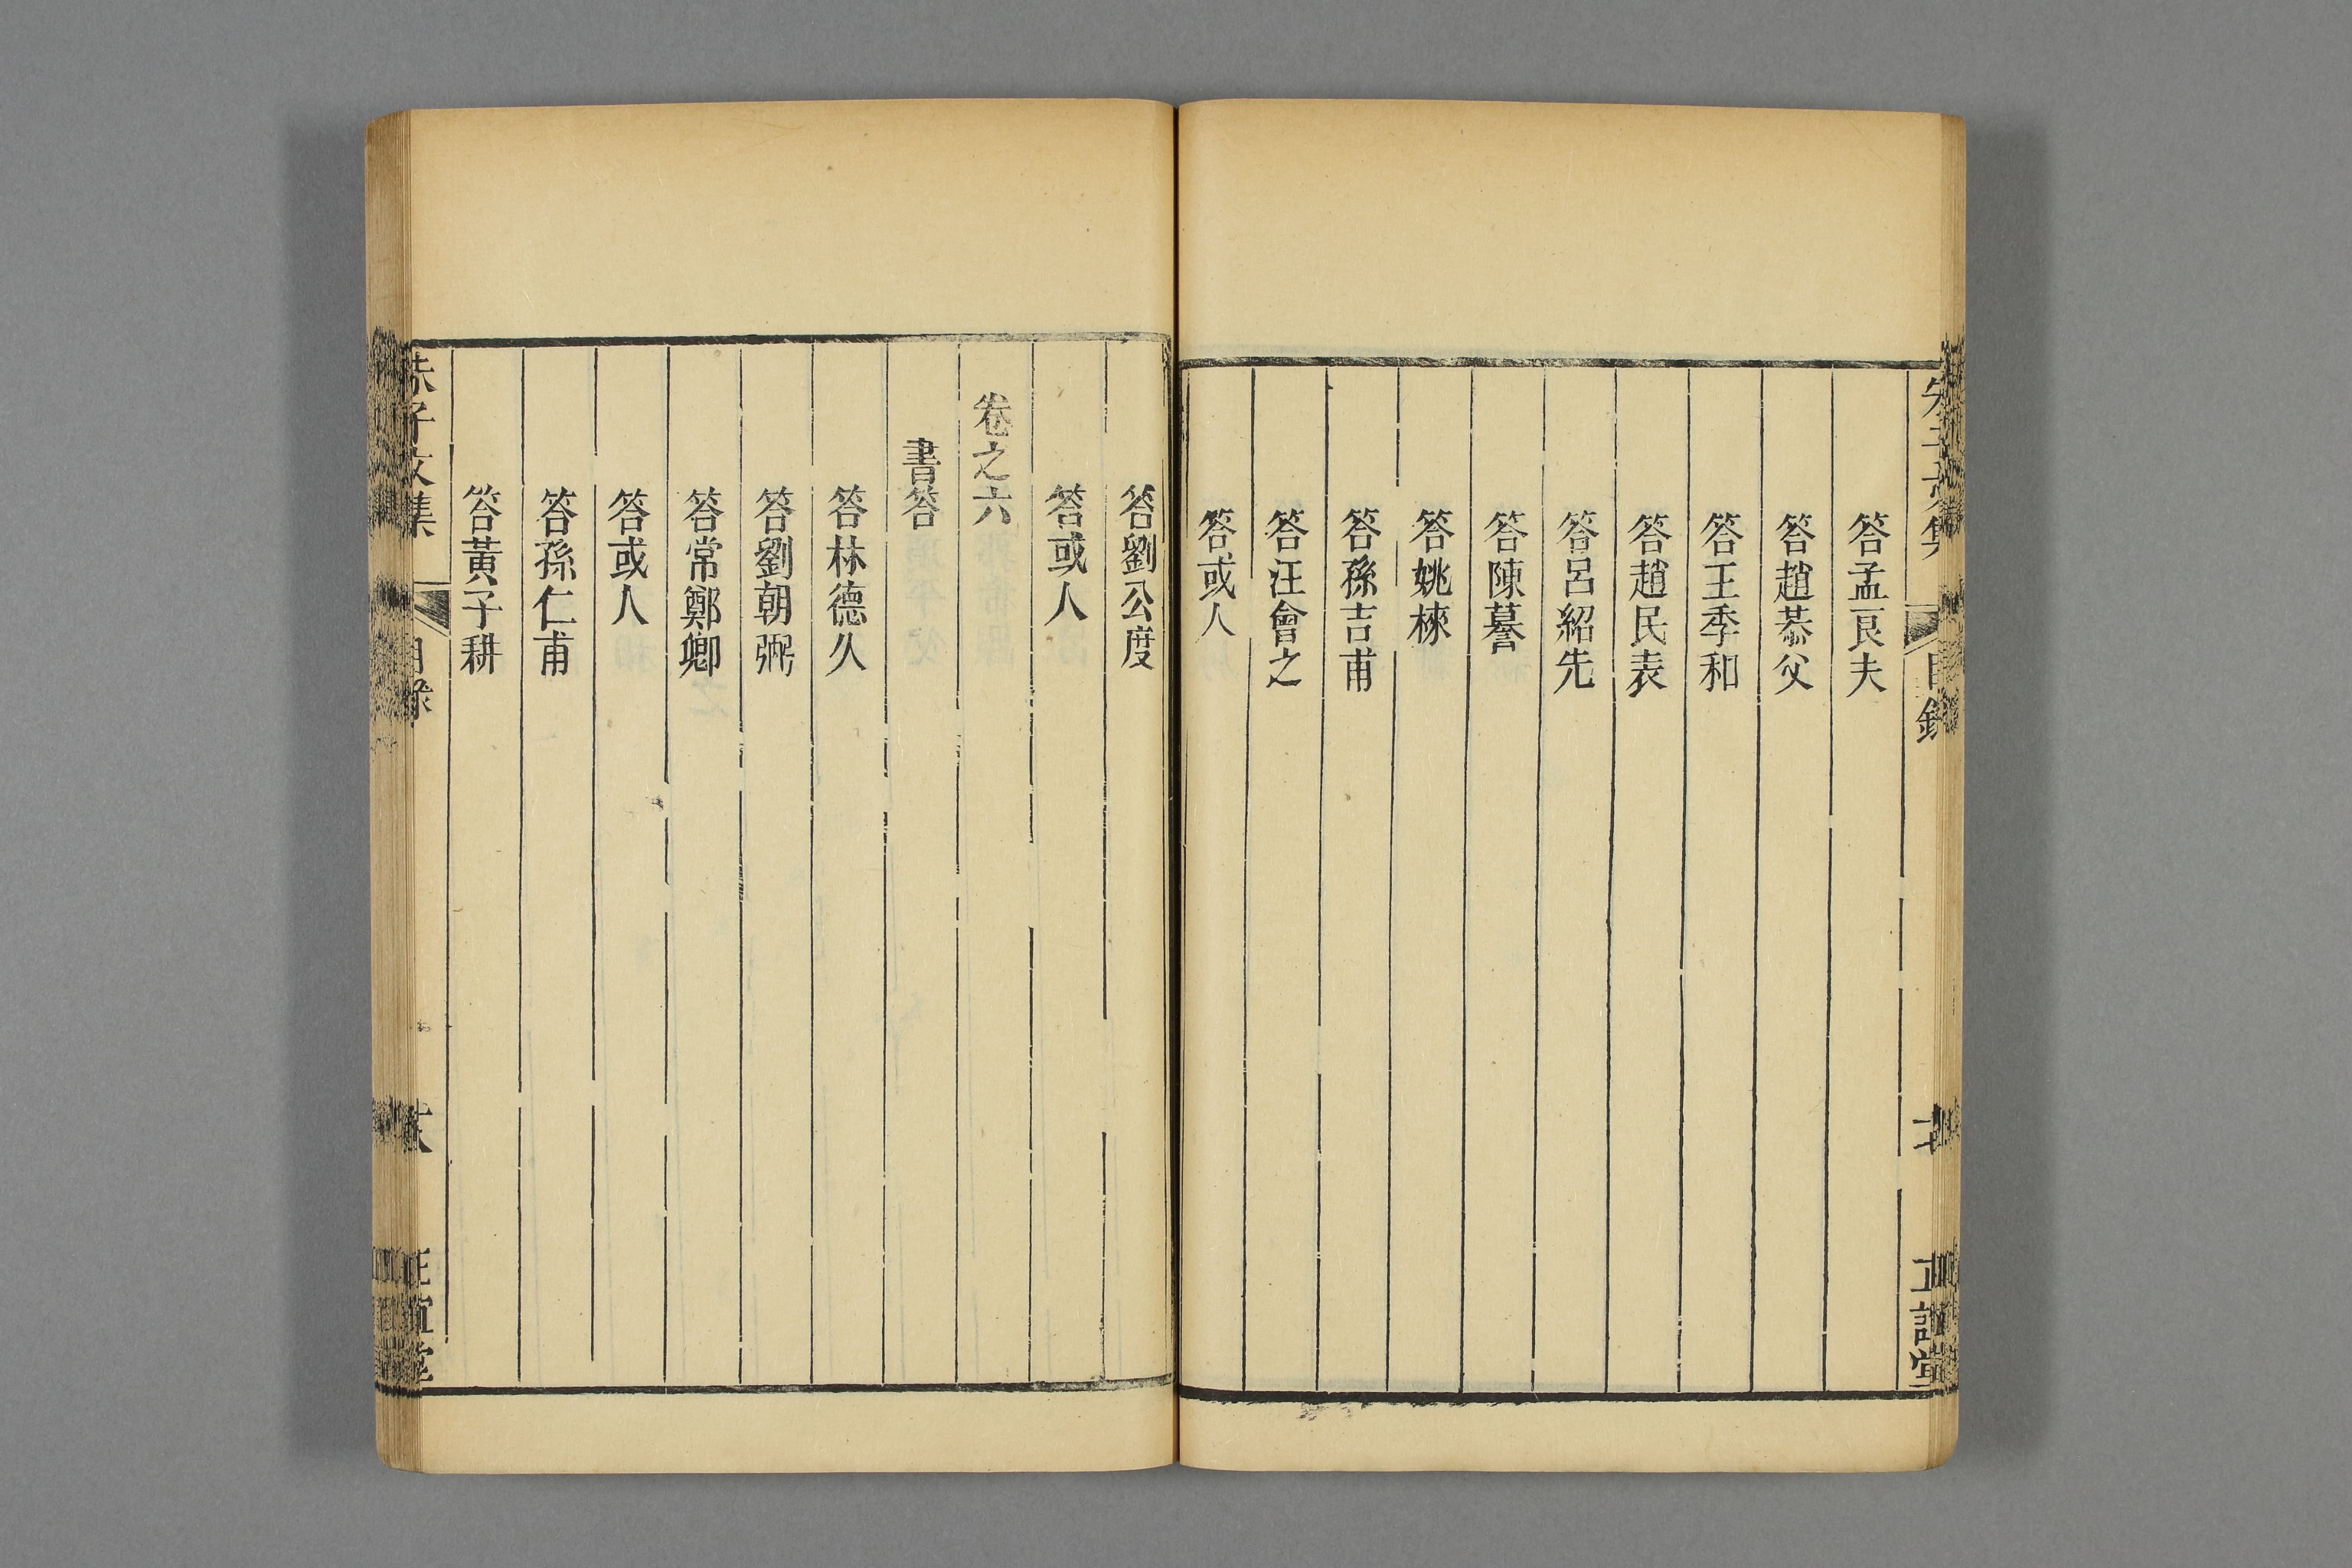 朱子文集
目錄
正誼堂
答孟良夫
答趙恭父
答王季和
答趙民表
答呂紹先
答陳謩
答姚棟
答孫吉甫
答汪會之
答或人
答劉公度
答或人
卷之六
書答
答林德久
答劉朝弼
答常鄭卿
答或人
答孫仁甫
答黃子耕
朱子文集
目錄
正誼堂